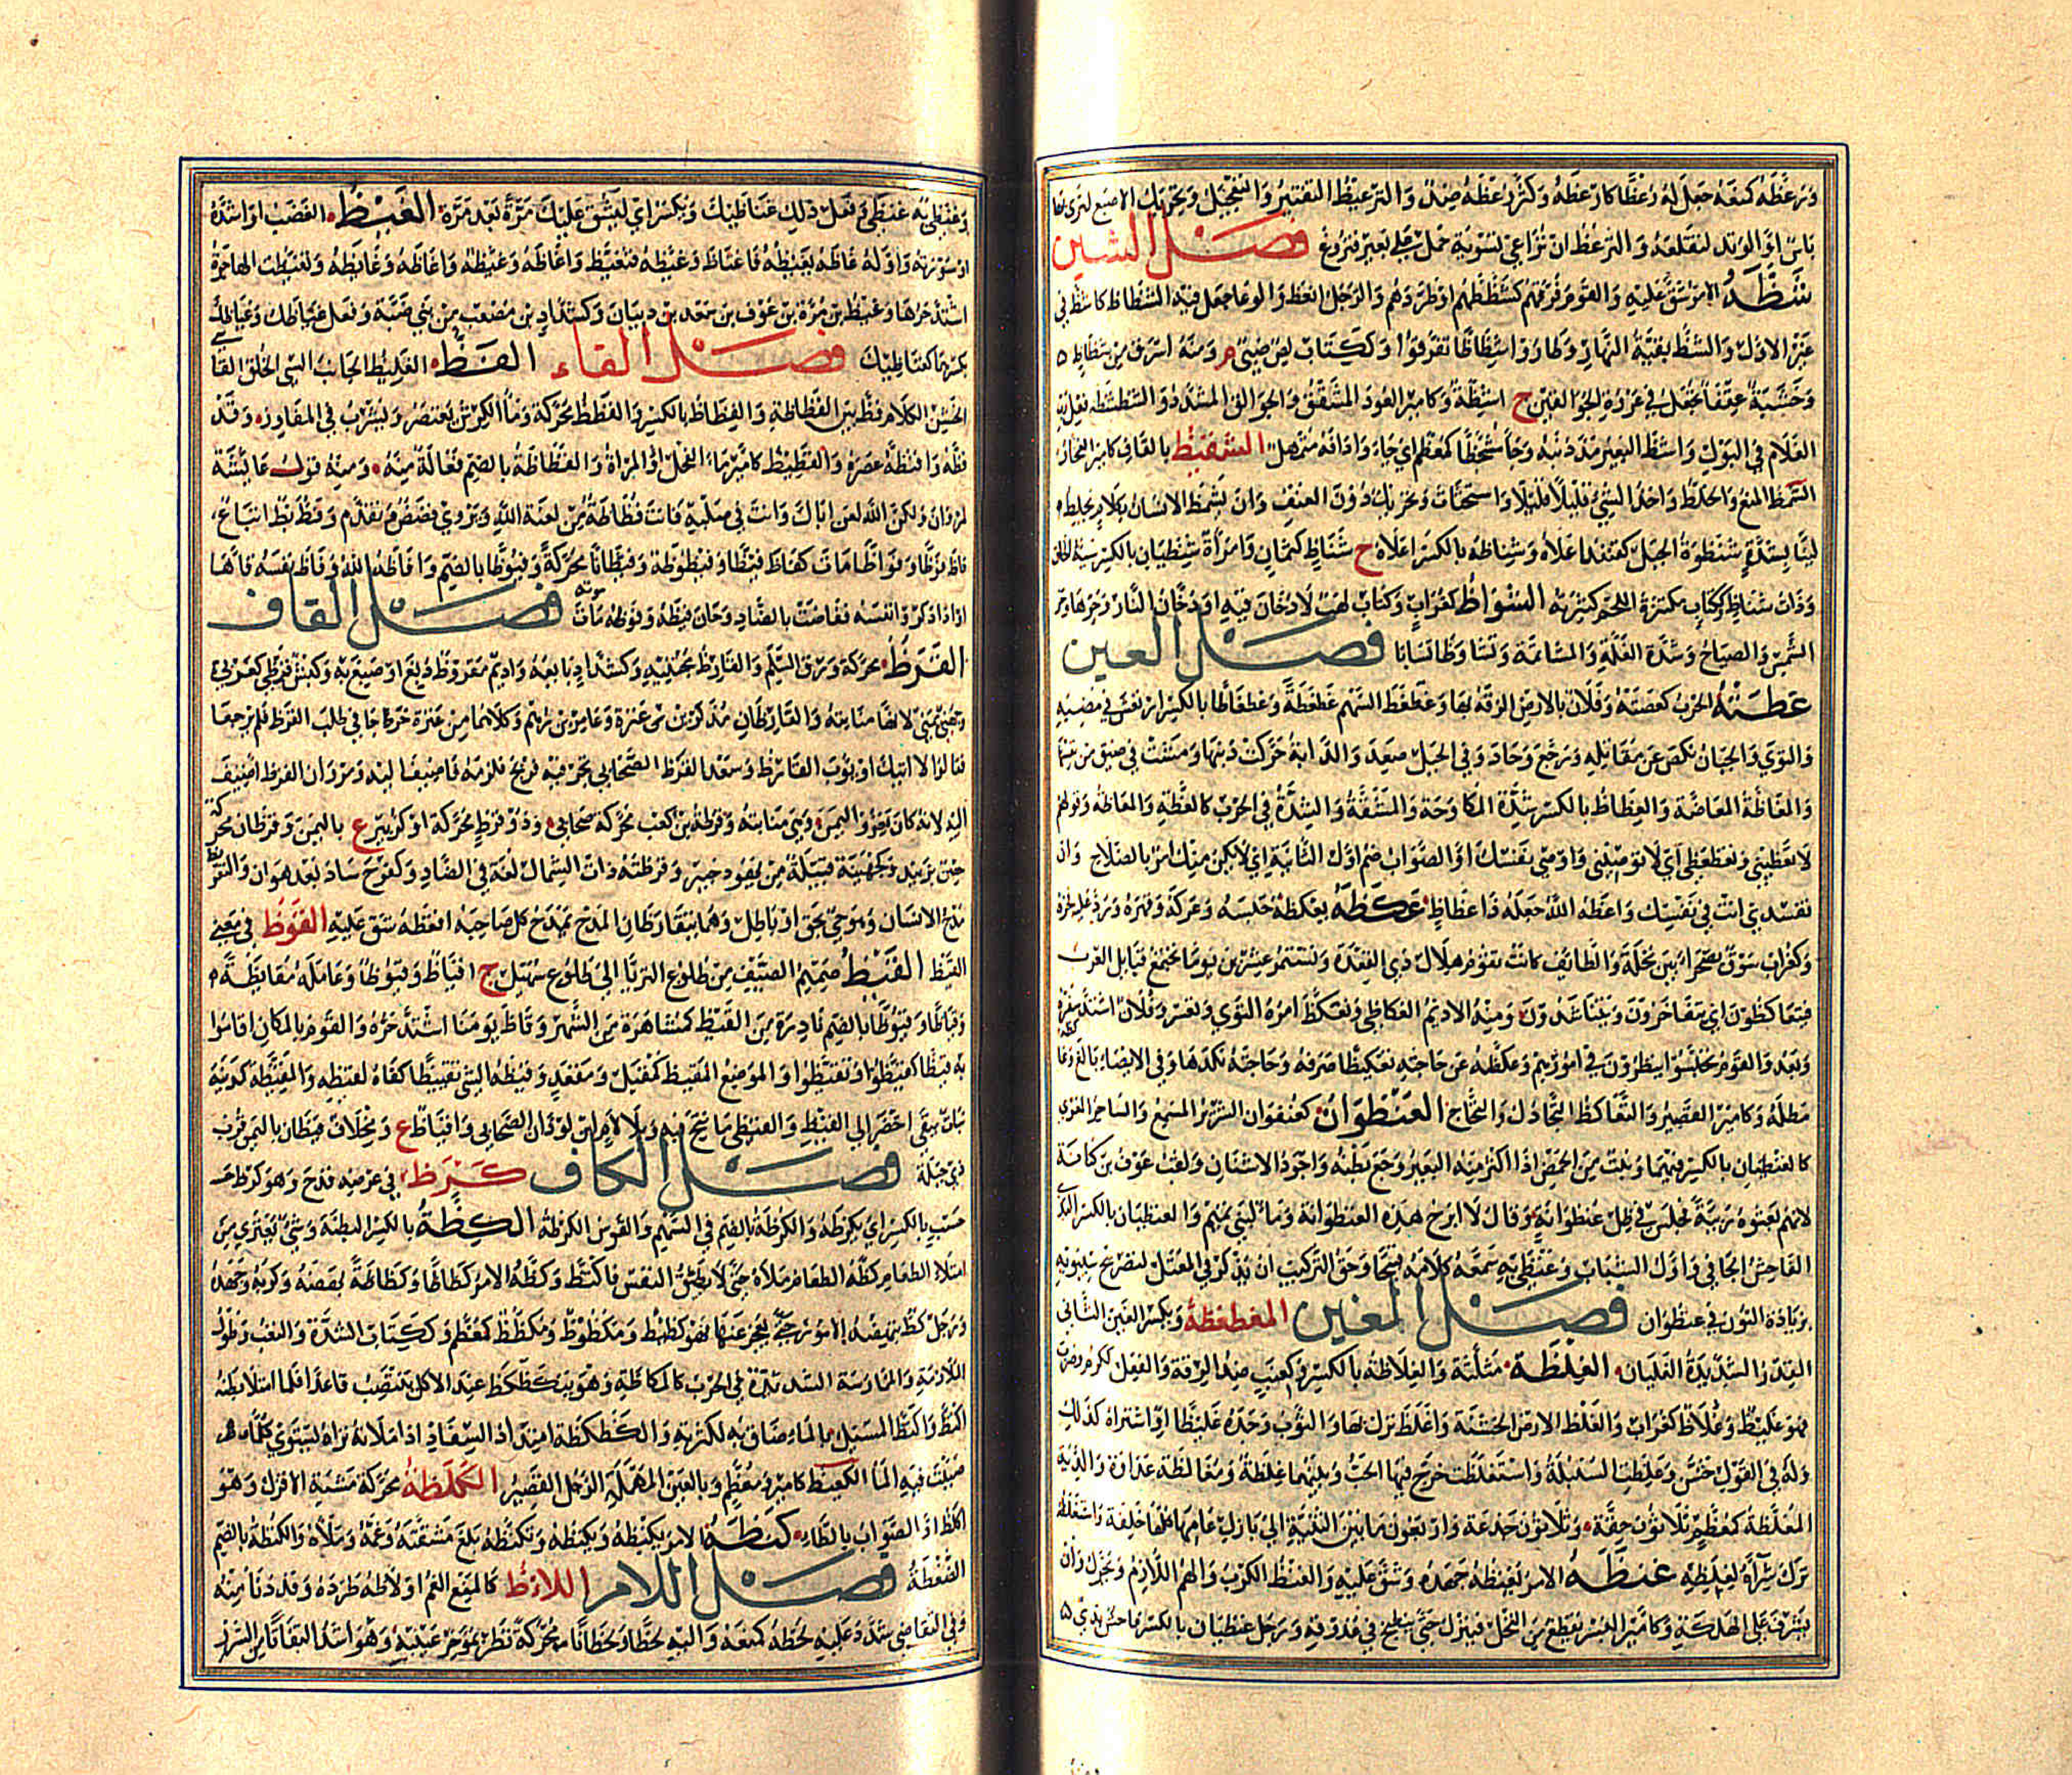 وَرَعَظَهُ كَمَنَعَهُ جَعَلَ لَهُ رُعْظًا كَأَرْعَظَهُ وَكَسَرَ رُعْظَهُ ضِدٌّ وَالتَّرْعِيظُ التَّفْتِيرُ وَالتَّعْجِيلُ وَتَحْرِيكُ الاِصْبَعِ لِتَرَى
بَأْسٌ اَوِ الْوَتِدِ لِتَقْلَعَهُ وَالتَّرَعُّظُ اَنْ تُزَاعِيَ تَسْوِيَةَ حِمْلٍ عَلَى بَعِيرٍ فَيَرُوغَ فصل الشين
شَظَّهُ الاَمْرُ شَقَّ عَلَيْهِ وَالْقَوْمَ فَرَّقَهُمْ كَشَظَّظَهُمْ اَوْ طَرَدَهُمْ وَالرَّجُلُ اَنْعَظَ وَالْوِعَاءَ جَعَلَ فِيهِ الشِّظَاظَ كَأَشَظَّ فِي
غَيْرِ الاَوَّلِ وَالشَّظُّ بَقِيَّةُ النَّهَارِ وَطَارُوا شَظَاظًا تَفَرَّقُوا وَكَكِتَابٍ لِصٌّ ضَبِّيٌّ م وَمِنْهُ اَسْرَقُ مِنْ شِظَاظٍ
وَخَشَبَةٌ عَقْفَاءُ تُجْعَلُ فِي عُرْوَةِ الْجُوَالِقَيْنِ ج اَشِظَّةٌ وَكَأَمِيرٍ الْعُودُ الْمُشَقَّقُ وَالْجُوَالِقُ الْمَشْدُودُ وَالشَّظْشَظَةُ فِعْلُ زُبِّ
الْغُلَامِ فِي الْبَوْلِ وَاَشَظَّ الْبَعِيرُ مَدَّ ذَنَبَهُ الشقيظ بِالْقَافِ كَأَمِيرٍ الْفَخَّارُ
الشمظ الْمَنْعُ وَالْخَلْطُ وَاَخْذُ الشَّيْءِ قَلِيلًا قَلِيلًا وَاسْتِحْثَاثٌ وَتَحْرِيكٌ دُونَ الْعُنْفِ وَاَنْ يَشْمِظَ الاِنْسَانَ بِكَلَامٍ يَخْلِطُ
لِينًا بِشِدَّةٍ شُنْظُوَةُ الْجَبَلِ اَعْلَاهُ وَشِنَاظُهُ بِالْكَسْرِ اَعْلَاهُ ج شَنَاظٍ كَثَمَانٍ وَامْرَأَةٌ شِنْظِيَانٌ بِالْكَسْرِ سَيِّئَةُ الْخُلُقِ
وَذَاتُ شِنَاظٍ كَكِتَابٍ مُكْتَنِزَةُ اللَّحْمِ كَثِيرَتُهُ الشواظ كَغُرَابٍ وَكِتَابٍ لَهَبٌ لَا دُخَانَ فِيهِ اَوْ دُخَانُ النَّارِ وَحَرُّهَا وَحَرُّ
الشَّمْسِ وَالصِّيَاحُ وَشِدَّةُ الْغُلَّةِ وَالْمُشَاتَمَةُ وَتَشَاوَظَا تَسَابَّا فصل العين
عظته الْحَرْبُ كَعَضَّتْهُ وَفُلَانٌ بِالْاَرْضِ اَلْزَقَهُ بِهَا وَعَظْعَظَ السَّهْمُ عَظْعَظَةً وَعِظْعَاظًا بِالْكَسْرِ ارْتَعَشَ فِي مُضِيِّهِ
وَالْتَوَى وَالْجَبَانُ نَكَصَ عَنْ مُقَاتِلِهِ وَرَجَعَ وَحَادَ وَفِي الْجَبَلِ صَعِدَ وَالدَّابَّةُ حَرَّكَتْ ذَنَبَهَا وَمَشَتْ فِي ضِيقٍ مِنْ نَفْسِهَا
وَالْعَاظَّةُ الْمُعَاضَّةُ وَالْعِظَاظُ بِالْكَسْرِ شِدَّةُ الْمُكَاوَحَةِ وَالْمَشَقَّةُ وَالشِّدَّةُ فِي الْحَرْبِ كَالْعَظَّةِ وَالْمُعَاظَّةِ وَقَوْلُهُمْ
لَا تَعِظِينِي وَتَعَظْعَظِي اَيْ لَا تُوصِينِي وَاَوْصِي نَفْسَكِ اَوِ الصَّوَابُ ضَمُّ اَوَّلِ الثَّانِيَةِ اَيْ لَا يَكُنْ مِنْكِ اَمْرٌ بِالصَّلَاحِ وَاَنْ
تُفْسِدِي اَنْتِ فِي نَفْسِكِ وَاَعَظَّهُ اللهُ جَعَلَهُ ذَا عِظَاظٍ عكظه يَعْكِظُهُ حَبَسَهُ وَعَرَكَهُ وَقَهَرَهُ وَرَدَّ عَلَيْهِ فَخْرَهُ
وَكَغُرَابٍ سُوقٌ بِصَحْرَاءَ بَيْنَ نَخْلَةَ وَالطَّائِفِ كَانَتْ تَقُومُ هِلَالَ ذِي الْقَعْدَةِ وَتَسْتَمِرُّ عِشْرِينَ يَوْمًا تَجْتَمِعُ قَبَائِلُ الْعَرَبِ
فَيَتَعَاكَظُونَ اَيْ يَتَفَاخَرُونَ وَيَتَنَاشَدُونَ وَمِنْهُ الاَدِيمُ الْعُكَاظِيُّ وَتَعَكَّظَ اَمْرُهُ الْتَوَى وَتَعَسَّرَ وَفُلَانٌ اشْتَدَّ سَفَرُهُ
وَبَعُدَ وَالْقَوْمُ تَحَبَّسُوا لِيَنْظُرُوا فِي اُمُورِهِمْ وَعَكَّظَهُ عَنْ حَاجَتِهِ تَعْكِيظًا صَرَفَهُ وَحَاجَتَهُ نَكَّدَهَا وَفِي الاِيصَاءِ بَالَغَ
مَطَلَهُ وَكَأَمِيرٍ الْقَصِيرُ وَالتَّعَاكُظُ التَّجَادُلُ وَالتَّحَاجُّ العنظوان كَعُنْفُوَانٍ الشِّرِّيرُ الْمُسَمِّعُ وَالسَّاخِرُ الْمُغْرِي
كَالْعِنْظِيَانِ بِالْكَسْرِ فِيهِمَا وَنَبْتٌ مِنَ الْحَمْضِ اِذَا اَكْثَرَ مِنْهُ الْبَعِيرُ وَجِعَ بَطْنُهُ وَاَجْوَدُ الاُشْنَانِ وَلَقَبُ عَوْفِ بْنِ كِنَانَةَ
لِاَنَّهُمْ بَعَثُوهُ رَبِيئَةً فَجَلَسَ فِي ظِلِّ عُنْظُوَانَةٍ وَقَالَ لَا اَبْرَحُ هَذِهِ الْعُنْظُوَانَةَ وَمَاءٌ لِبَنِي تَمِيمٍ وَالْعِنْظِيَانُ بِالْكَسْرِ الْبَذِيُّ
الْفَاحِشُ الْجَافِي وَاَوَّلُ الشَّبَابِ وَعَنْظَى بِهِ سَمَّعَهُ كَلَامًا قَبِيحًا وَحَقُّ التَّرْكِيبِ اَنْ يُذْكَرَ فِي الْمُعْتَلِّ لِتَصْرِيحِ سِيبَوَيْهِ
بِزِيَادَةِ النُّونِ فِي عُنْظُوَانٍ فصل الغين المغطغظة وَبِكَسْرِ الْغَيْنِ الثَّانِي
الْقِدْرُ الشَّدِيدَةُ الْغَلَيَانِ الغلظة مُثَلَّثَةً وَالْغِلَاظَةُ بِالْكَسْرِ وَكَعِنَبٍ ضِدُّ الرِّقَّةِ وَالْفِعْلُ كَكَرُمَ وَضَرَبَ
فَهُوَ غَلِيظٌ وَغُلَاظٌ كَغُرَابٍ وَالْغَلْظُ الاَرْضُ الْخَشِنَةُ وَاَغْلَظَ نَزَلَ بِهَا وَالثَّوْبَ وَجَدَهُ غَلِيظًا اَوِ اشْتَرَاهُ كَذَلِكَ
وَلَهُ فِي الْقَوْلِ خَشَّنَ وَغَلُظَتِ السُّنْبُلَةُ وَاسْتَغْلَظَتْ خَرَجَ فِيهَا الْحَبُّ وَبَيْنَهُمَا غِلْظَةٌ وَمُغَالَظَةٌ عَدَاوَةٌ وَالدِّيَةُ
الْمُغَلَّظَةُ كَمُعَظَّمَةٍ ثَلَاثُونَ حِقَّةً وَثَلَاثُونَ جَذَعَةً وَاَرْبَعُونَ مَا بَيْنَ الثَّنِيَّةِ اِلَى بَازِلِ عَامِهَا كُلُّهَا خَلِفَةٌ وَاسْتَغْلَظَهُ
تَرَكَ شِرَاهُ لِغِلَظِهِ غنظه الاَمْرُ يَغْنِظُهُ جَهَدَهُ وَشَقَّ عَلَيْهِ وَالْغَنْظُ الْكَرْبُ وَالْهَمُّ اللَّازِمُ وَيُحَرَّكُ وَاَنْ
يُشْرِفَ عَلَى الْهَلَكَةِ وَكَأَمِيرٍ الْبُسْرُ يُقْطَعُ مِنَ النَّخْلِ فَيُتْرَكُ حَتَّى يَنْضَجَ فِي عُذُوقِهِ وَرَجُلٌ غِنْظِيَانٌ بِالْكَسْرِ فَاحِشٌ بَذِيٌّ
وَغَنْظَى بِهِ عَنْظَى وَفَعَلَ ذَلِكَ غَنَاظَيْكَ وَيُكْسَرُ اَيْ لِيَشُقَّ عَلَيْكَ مَرَّةً بَعْدَ مَرَّةٍ الغيظ الْغَضَبُ اَوْ اَشَدُّهُ
اَوْ سَوْرَتُهُ وَاَوَّلُهُ غَاظَهُ يَغِيظُهُ فَاغْتَاظَ وَغَيَّظَهُ فَتَغَيَّظَ وَاَغَاظَهُ وَغَايَظَهُ وَتَغَيَّظَتِ الْهَاجِرَةُ
اشْتَدَّ حَرُّهَا وَغَيْظُ بْنُ مُرَّةَ بْنِ عَوْفِ بْنِ سَعْدِ بْنِ ذِبْيَانَ وَكَشَدَّادٍ بْنُ مُصْعَبٍ مِنْ بَنِي ضَبَّةَ وَفَعَلَ غِيَاظَكَ وَغِيَاظَيْكَ
بِكَسْرِهِمَا كَغَنَاظَيْكَ فصل الفاء الفظ الْغَلِيظُ الْجَانِبِ السَّيِّئُ الْخُلُقِ الْقَاسِي
الْخَشِنُ الْكَلَامِ فَظٌّ بَيِّنُ الْفَظَاظَةِ وَالْفِظَاظِ بِالْكَسْرِ وَالْفَظَظُ مُحَرَّكَةً وَمَاءُ الْكَرِشِ يُعْتَصَرُ وَيُشْرَبُ فِي الْمَفَاوِزِ وَقَدْ
فَظَّهُ وَافْتَظَّهُ عَصَرَهُ وَالْفَظِيظُ كَأَمِيرٍ مَاءُ الْفَحْلِ اَوِ الْمَرْأَةِ وَالْفُظَاظَةُ بِالضَّمِّ فُعَالَةٌ مِنْهُ وَمِنْهُ قَوْلُ عَائِشَةَ
لِمَرْوَانَ وَلَكِنَّ اللهَ لَعَنَ اَبَاكَ وَاَنْتَ فِي صُلْبِهِ فَاَنْتَ فُظَاظَةٌ مِنْ لَعْنَةِ اللهِ وَيُرْوَى فُضُضٌ وَتَقَدَّمَ وَفَظٌّ بَظٌّ اِتْبَاعٌ
فاظ فَوْظًا وَفَوَاظًا مَاتَ كَفَاظَ فَيْظًا وَفَيْظُوظَةً وَفَيَظَانًا مُحَرَّكَةً وَفُيُوظًا بِالضَّمِّ وَاَفَاظَهُ اللهُ وَفَاظَ نَفْسَهُ قَاءَهَا
اَوْ اِذَا ذَكَرُوا نَفْسَهُ فَفَاضَتْ بِالضَّادِ وَحَانَ فَيْظُهُ وَفَوْظُهُ مَوْتُهُ فصل القاف
القرظ مُحَرَّكَةً وَرَقُ السَّلَمِ وَالْقَارِظُ مُجْتَنِيهِ وَكَشَدَّادٍ بَائِعُهُ وَاَدِيمٌ مَقْرُوظٌ دُبِغَ اَوْ صُبِغَ بِهِ وَكَبْشٌ قُرَظِيٌّ كَعَرَبِيٍّ
وَجُهَنِيٍّ يَمَنِيٌّ لِاَنَّهَا مَنَابِتُهُ وَالْقَارِظَانِ يَذْكُرُ بْنُ عَنَزَةَ وَعَامِرُ بْنُ رُهْمٍ وَكِلَاهُمَا مِنْ عَنَزَةَ خَرَجَا فِي طَلَبِ الْقَرَظِ فَلَمْ يَرْجِعَا
فَقَالُوا لَا آتِيكَ اَوْ يَؤُوبَ الْقَارِظُ وَسَعْدُ الْقَرَظِ الصَّحَابِيُّ تَجَرَ فِيهِ فَرَبِحَ فَلَزِمَهُ فَاُضِيفَ اِلَيْهِ وَمَرْوَانُ الْقَرَظِ اُضِيفَ
اِلَيْهِ لِاَنَّهُ كَانَ يَغْزُو الْيَمَنَ وَهِيَ مَنَابِتُهُ وَقَرَظَةُ بْنُ كَعْبٍ مُحَرَّكَةً صَحَابِيٌّ وَذُو قَرَظٍ مُحَرَّكَةً اَوْ كَزُبَيْرٍ ع بِالْيَمَنِ وَقَرَظَانُ مُحَرَّكَةً
حِصْنٌ بِزَبِيدَ وَكَجُهَيْنَةَ قَبِيلَةٌ مِنْ يَهُودِ خَيْبَرَ وَقَرَظَتُهُ ذَاتَ الشِّمَالِ لُغَةٌ فِي الضَّادِ وَكَفَرِحَ سَادَ بَعْدَ هَوَانٍ وَالتَّقْرِيظُ
مَدْحُ الاِنْسَانِ وَهُوَ حَيٌّ بِحَقٍّ اَوْ بَاطِلٍ وَهُمَا يَتَقَارَظَانِ الْمَدْحَ يَمْدَحُ كُلٌّ صَاحِبَهُ اقعظه شَقَّ عَلَيْهِ القوظ فِي مَعْنَى
الْقَيْظِ القيظ صَمِيمُ الصَّيْفِ مِنْ طُلُوعِ الثُّرَيَّا اِلَى طُلُوعِ سُهَيْلٍ ج اَقْيَاظٌ وَقُيُوظٌ وَعَامَلَهُ مُقَايَظَةً
وَقِيَاظًا وَقُيُوظًا بِالضَّمِّ نَادِرَةً مِنَ الْقَيْظِ كَمُشَاهَرَةٍ مِنَ الشَّهْرِ وَقَاظَ يَوْمُنَا اشْتَدَّ حَرُّهُ وَالْقَوْمُ بِالْمَكَانِ اَقَامُوا
بِهِ قَيْظًا كَقَيَّظُوا وَتَقَيَّظُوا وَالْمَوْضِعُ الْمَقِيظُ كَمَقِيلٍ وَمَقْعَدٍ وَقَيَّظَهُ الشَّيْءُ تَقْيِيظًا كَفَاهُ لِقَيْظِهِ وَالْمَقِيظَةُ كَمَدِينَةٍ
نَبَاتٌ يَبْقَى اَخْضَرَ اِلَى الْقَيْظِ وَالْقَيْظِيُّ مَا نُتِجَ فِيهِ وَبِلَا لَامٍ ابْنُ لَوْذَانَ الصَّحَابِيُّ وَاَقْيَاظٌ ع وَمِخْلَافُ قَيْظَانَ بِالْيَمَنِ قُرْبَ
ذِي جِبْلَةَ فصل الكاف كرظ فِي عِرْضِهِ قَدَحَ وَهُوَ كَرِظُ
حَسَبٍ بِالْكَسْرِ اَيْ يَكْرِظُهُ وَالْكُرْظَةُ بِالضَّمِّ فِي السَّهْمِ وَالْقَوْسِ الكظة بِالْكَسْرِ الْبِطْنَةُ وَشَيْءٌ يَعْتَرِي مِنَ
امْتِلَاءِ الطَّعَامِ كَظَّهُ الطَّعَامُ مَلَأَهُ حَتَّى لَا يُطِيقَ النَّفَسَ فَاكْتَظَّ وَكَظَّهُ الاَمْرُ كَظَاظًا وَكَظَاظَةً بَهَظَهُ وَكَرَبَهُ وَجَهَدَهُ
وَرَجُلٌ كَظٌّ تَبْهَظُهُ الاُمُورُ حَتَّى يَعْجِزَ عَنْهَا فَهُوَ كَظِيظٌ وَمَكْظُوظٌ وَمُكَظَّظٌ كَمُعَظَّمٍ وَكَكِتَابٍ الشِّدَّةُ وَالتَّعَبُ وَطُولُ
الْمُلَازَمَةِ وَالْمُمَارَسَةُ الشَّدِيدَةُ فِي الْحَرْبِ كَالْمُكَاظَّةِ وَهُوَ يَتَكَظْكَظُ عِنْدَ الاَكْلِ يَنْتَصِبُ قَاعِدًا كُلَّمَا امْتَلَأَ بَطْنُهُ
اكتظ الْمَسِيلُ بِالْمَاءِ ضَاقَ بِهِ لِكَثْرَتِهِ وَالْكَظْكَظَةُ امْتِدَادُ السِّقَاءِ اِذَا مَلَأْتَهُ تَرَاهُ يَسْتَوِي كُلَّمَا
صَبَبْتَ فِيهِ الْمَاءَ الكعيظ كَأَمِيرٍ وَمُعَظَّمٍ وَبِالْعَيْنِ الْمُهْمَلَةِ الرَّجُلُ الْقَصِيرُ الكلظة مُحَرَّكَةً مِشْيَةُ الاَقْزَلِ وَهُوَ
اَكْلَظُ اَوِ الصَّوَابُ بِالطَّاءِ كنظه الاَمْرُ يَكْنِظُهُ وَيَكْنُظُهُ وَتَكَنَّظَهُ بَلَغَ مَشَقَّتَهُ وَغَمَّهُ وَمَلَأَهُ وَالْكُنْظَةُ بِالضَّمِّ
الضَّغْطَةُ فصل اللام اللأظ كَالْمَنْعِ الْغَمُّ وَلَأَظَهُ طَرَدَهُ وَقَدْ دَنَا مِنْهُ
وَفِي التَّقَاضِي شَدَّدَ عَلَيْهِ لحظه كَمَنَعَهُ وَاِلَيْهِ لَحْظًا وَلَحَظَانًا مُحَرَّكَةً نَظَرَ بِمُؤْخِرِ عَيْنَيْهِ وَهُوَ اَشَدُّ الْتِفَاتًا مِنَ الشَّزْرِ